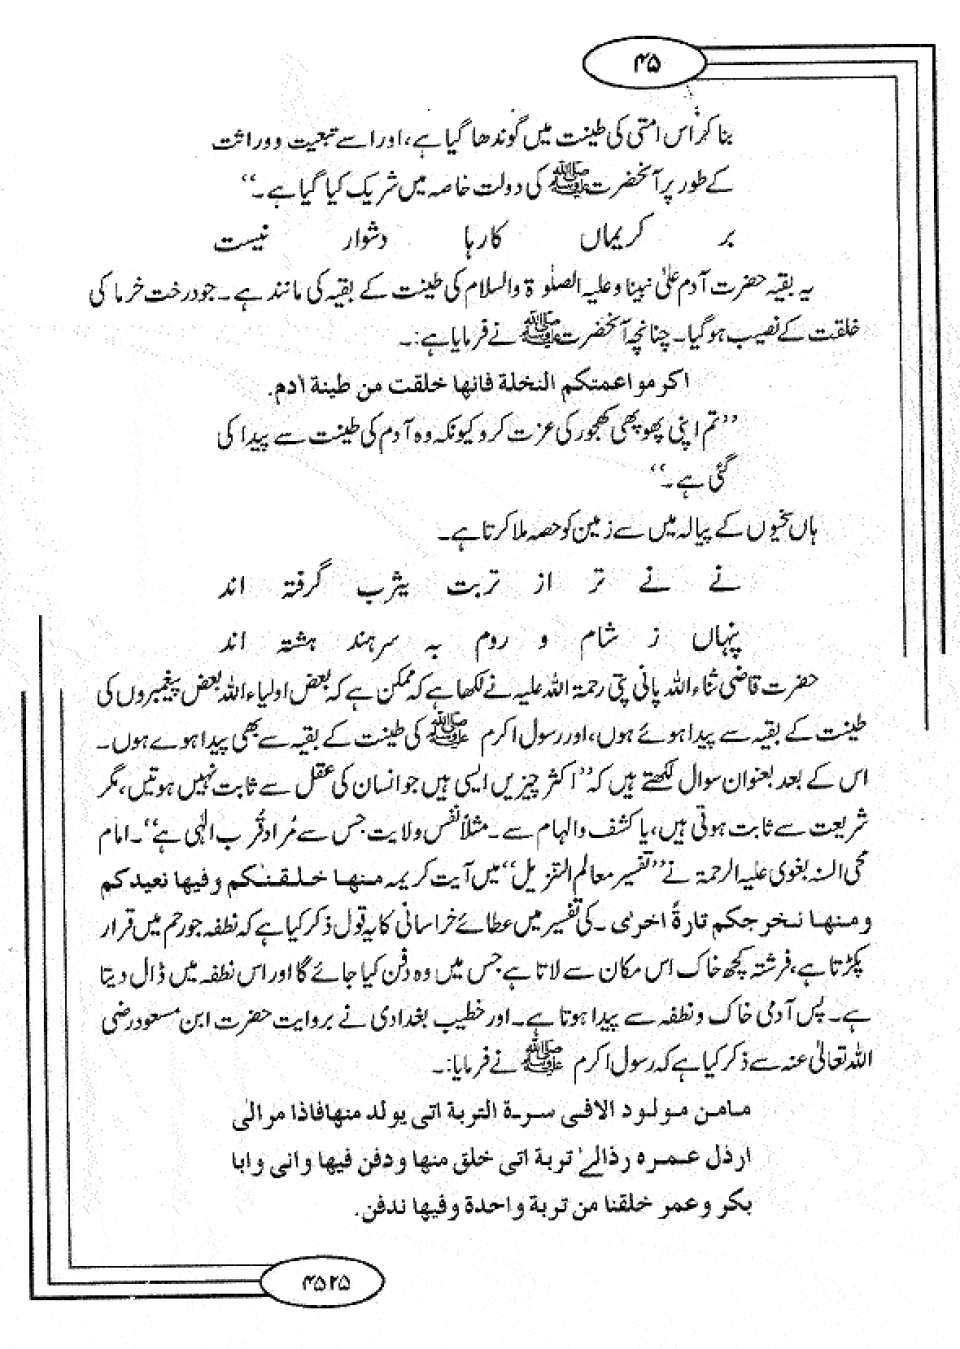 ۴۵
بنا کر اس امتی کی طینت میں گوندھا گیا ہے، اور اسے تبعیت و وراثت
کے طور پر آنحضرت ﷺ کی دولت خاصہ میں شریک کیا گیا ہے۔‘‘
بر کریماں کارہا دشوار نیست
یہ بقیہ حضرت آدم علیٰ نبینا و علیہ الصلوٰۃ والسلام کی طینت کے بقیہ کی مانند ہے۔ جو درخت خرما کی
خلقت کے نصیب ہو گیا۔ چنانچہ آنحضرت ﷺ نے فرمایا ہے:۔
اکرمو اعمتکم النخلة فانها خلقت من طینة آدم.
’’تم اپنی پھوپھی کھجور کی عزت کرو کیونکہ وہ آدم کی طینت سے پیدا کی
گئی ہے۔‘‘
ہاں سخیوں کے پیالہ میں سے زمین کو حصہ ملا کرتا ہے۔
نے نے تر از تربت یثرب گرفتہ اند
پنہاں ز شام و روم بہ سرہند ہشتہ اند
حضرت قاضی ثناء اللہ پانی پتی رحمۃ اللہ علیہ نے لکھا ہے کہ ممکن ہے کہ بعض اولیاء اللہ بعض پیغمبروں کی
طینت کے بقیہ سے پیدا ہوئے ہوں، اور رسول اکرم ﷺ کی طینت کے بقیہ سے بھی پیدا ہوے ہوں۔
اس کے بعد بعنوان سوال لکھتے ہیں کہ ’’اکثر چیزیں ایسی ہیں جو انسان کی عقل سے ثابت نہیں ہوتیں، مگر
شریعت سے ثابت ہوتی ہیں، یا کشف و الہام سے۔ مثلاً نفس ولایت جس سے مراد قُرب الٰہی ہے‘‘۔ امام
محی السنہ بغوی علیہ الرحمۃ نے ’’تفسیر معالم التنزیل‘‘ میں آیت کریمہ منها خلقنکم و فیها نعیدکم
و منها نخرجکم تارۃً اخری۔ کی تفسیر میں عطائے خراسانی کا یہ قول ذکر کیا ہے کہ نطفہ جو رحم میں قرار
پکڑتا ہے، فرشتہ کچھ خاک اس مکان سے لاتا ہے جس میں وہ دفن کیا جائے گا اور اس نطفہ میں ڈال دیتا
ہے۔ پس آدمی خاک و نطفہ سے پیدا ہوتا ہے۔ اور خطیب بغدادی نے بروایت حضرت ابن مسعود رضی
اللہ تعالیٰ عنہ سے ذکر کیا ہے کہ رسول اکرم ﷺ نے فرمایا:۔
مامن مولود الافی سرة التربة اتی یولد منها فاذا مرالیٰ
ارذل عمره رذالےٰ تربة اتی خلق منها ودفن فیها وانی وابا
بکر وعمر خلقنا من تربة واحدة وفیها ندفن.
۴۵۲۵